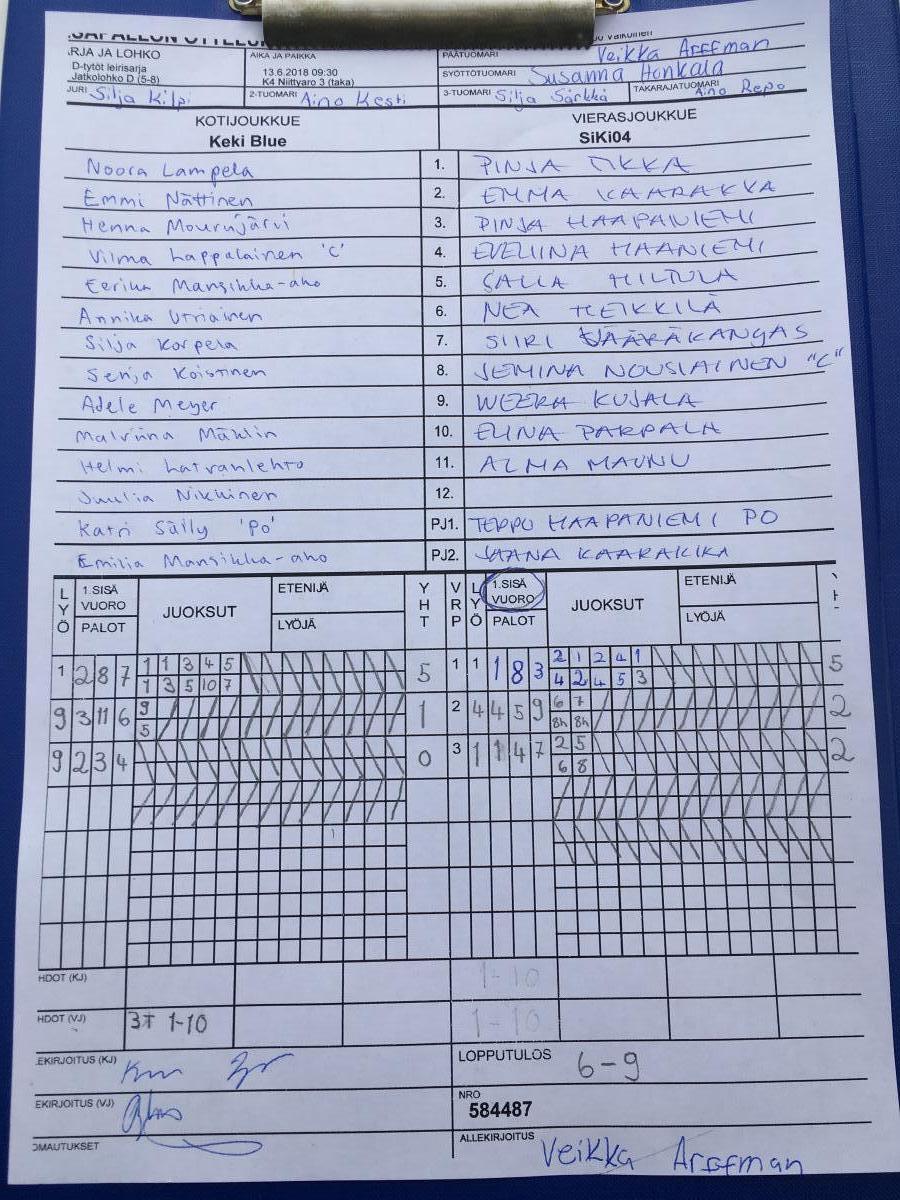 ARJA JA LOHKO
D-tytöt leirisarja
Jatkolohko D (5-8)
AIKA JA PAIKKA
13.6.2018 09:30
K4 Niittyaro 3 (taka)
PÄÄTUOMARI Veikka Arffman
SYÖTTÖTUOMARI Susanna Honkala
JURI Silja Kilpi 2-TUOMARI Aino Kesti 3-TUOMARI Silja Särkkä TAKARAJATUOMARI Aino Repo
KOTIJOUKKUE VIERASJOUKKUE
Keki Blue SiKi04
Noora Lampela 1. PINJA TIKKA
Emmi Nättinen 2. EMMA KAARAKKA
Henna Mourujärvi 3. PINJA HAAPANIEMI
Vilma Lappalainen 'C' 4. EVELIINA HAANIEMI
Eerika Mansikka-aho 5. SALLA HILTULA
Annika Utriainen 6. NEA HEIKKILÄ
Silja Korpela 7. SIIRI VÄÄRÄKANGAS
Senja Koistinen 8. JEMINA NOUSIAINEN "C"
Adele Meyer 9. WEERA KUJALA
Malviina Mählin 10. ELINA PARPALA
Helmi Latvanlehto 11. ALMA MAUNU
Juulia Nikkinen 12.
Katri Sälly 'PO' PJ1. TEPPO HAAPANIEMI PO
Emilia Mansikka-aho PJ2. JAANA KAARAKKA
LYÖ 1.SISÄ VUORO PALOT JUOKSUT ETENIJÄ LYÖJÄ YHT VRP LYÖ 1.SISÄ VUORO PALOT JUOKSUT ETENIJÄ LYÖJÄ
1 2 8 7 1 1 3 4 5 5 1 1 1 8 3 2 1 2 4 1 5
1 3 5 10 7 4 2 4 5 3
9 3 11 6 9 1 2 4 4 5 9 6 7 2
5 8h 8h
9 2 3 4 0 3 1 1 4 7 2 5 2
6 8
HDOT (KJ) 1-10
HDOT (VJ) 3T 1-10 1-10
EKIRJOITUS (KJ) LOPPUTULOS 6-9
EKIRJOITUS (VJ) NRO
584487
OMAUTUKSET ALLEKIRJOITUS Veikka Arffman